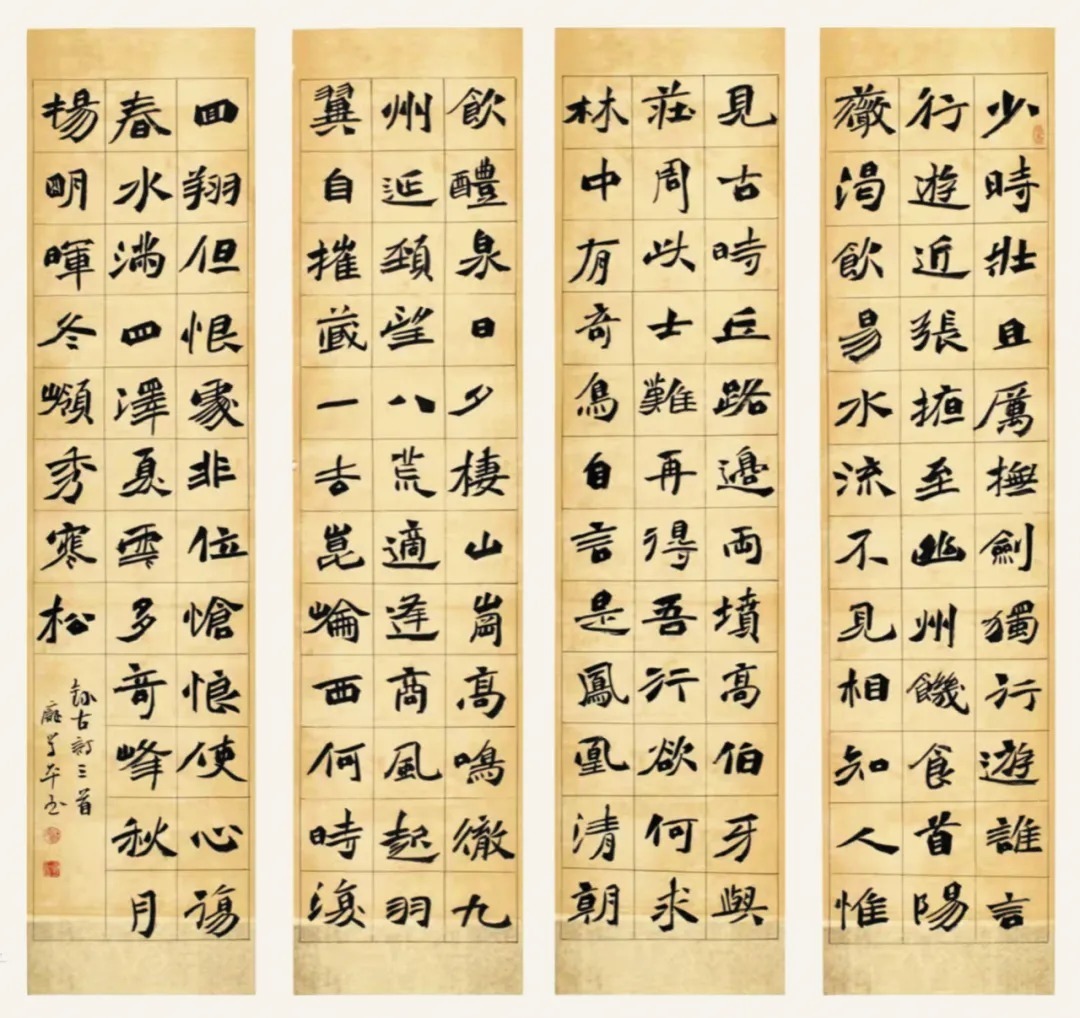 少時壯且厲撫劍獨行遊誰言
行遊近張掖至幽州饑食首陽
薇渴飲易水流不見相知人惟
見古時丘路邊兩墳高伯牙與
莊周此士難再得吾行欲何求
林中有奇鳥自言是鳳凰清朝
飲醴泉日夕棲山崗高鳴徹九
州延頸望八荒適逢商風起羽
翼自摧藏一去崑崙西何時復
回翔但恨處非位愴悢使心傷
春水滿四澤夏雲多奇峰秋月
揚明暉冬嶺秀寒松
錄古詩三首